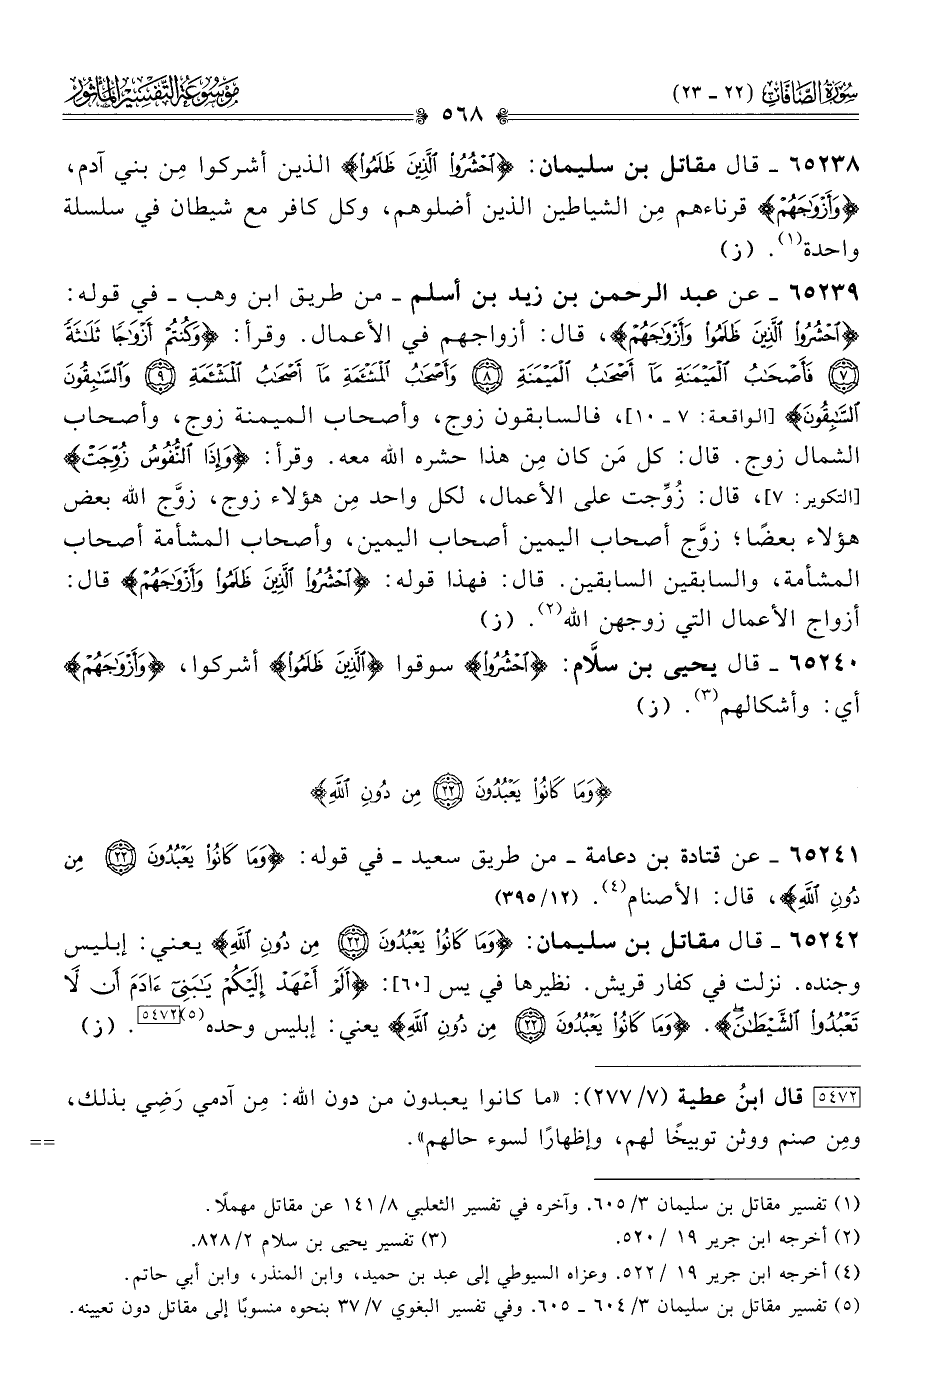 سُورَةُ الصَّافَاتِ (٢٢ - ٢٣)
٥٦٨
مَوْسُوعَةُ التَّفْسِيرِ الْمَأْثُورِ
٦٥٢٣٨ - قال مقاتل بن سليمان: ﴿ٱحْشُرُوا۟ ٱلَّذِينَ ظَلَمُوا۟﴾ الذين أشركوا مِن بني آدم،
﴿وَأَزْوَٰجَهُمْ﴾ قرناءهم مِن الشياطين الذين أضلوهم، وكل كافر مع شيطان في سلسلة
واحدة(١). (ز)
٦٥٢٣٩ - عن عبد الرحمن بن زيد بن أسلم - من طريق ابن وهب - في قوله:
﴿ٱحْشُرُوا۟ ٱلَّذِينَ ظَلَمُوا۟ وَأَزْوَٰجَهُمْ﴾، قال: أزواجهم في الأعمال. وقرأ: ﴿وَكُنتُمْ أَزْوَٰجًا ثَلَـٰثَةً
٧ فَأَصْحَـٰبُ ٱلْمَيْمَنَةِ مَآ أَصْحَـٰبُ ٱلْمَيْمَنَةِ ٨ وَأَصْحَـٰبُ ٱلْمَشْـَٔمَةِ مَآ أَصْحَـٰبُ ٱلْمَشْـَٔمَةِ ٩ وَٱلسَّـٰبِقُونَ
ٱلسَّـٰبِقُونَ﴾ [الواقعة: ٧ - ١٠]، فالسابقون زوج، وأصحاب الميمنة زوج، وأصحاب
الشمال زوج. قال: كل مَن كان مِن هذا حشره الله معه. وقرأ: ﴿وَإِذَا ٱلنُّفُوسُ زُوِّجَتْ﴾
[التكوير: ٧]، قال: زُوِّجت على الأعمال، لكل واحد مِن هؤلاء زوج، زوج الله بعض
هؤلاء بعضًا؛ زوَّج أصحاب اليمين أصحاب اليمين، وأصحاب المشأمة أصحاب
المشأمة، والسابقين السابقين. قال: فهذا قوله: ﴿ٱحْشُرُوا۟ ٱلَّذِينَ ظَلَمُوا۟ وَأَزْوَٰجَهُمْ﴾ قال:
أزواج الأعمال التي زوجهن الله(٢). (ز)
٦٥٢٤٠ - قال يحيى بن سلَّام: ﴿ٱحْشُرُوا۟﴾ سوقوا ﴿ٱلَّذِينَ ظَلَمُوا۟﴾ أشركوا، ﴿وَأَزْوَٰجَهُمْ﴾
أي: وأشكالهم(٣). (ز)
﴿وَمَا كَانُوا۟ يَعْبُدُونَ ٢٢ مِن دُونِ ٱللَّهِ﴾
٦٥٢٤١ - عن قتادة بن دعامة - من طريق سعيد - في قوله: ﴿وَمَا كَانُوا۟ يَعْبُدُونَ ٢٢ مِن
دُونِ ٱللَّهِ﴾، قال: الأصنام(٤). (٣٩٥/١٢)
٦٥٢٤٢ - قال مقاتل بن سليمان: ﴿وَمَا كَانُوا۟ يَعْبُدُونَ ٢٢ مِن دُونِ ٱللَّهِ﴾ يعني: إبليس
وجنده. نزلت في كفار قريش. نظيرها في يس [٦٠]: ﴿أَلَمْ أَعْهَدْ إِلَيْكُمْ يَـٰبَنِىٓ ءَادَمَ أَن لَّا
تَعْبُدُوا۟ ٱلشَّيْطَـٰنَ ۖ﴾. ﴿وَمَا كَانُوا۟ يَعْبُدُونَ ٢٢ مِن دُونِ ٱللَّهِ﴾ يعني: إبليس وحده(٥)[٥٤٧٢]. (ز)
[٥٤٧٢] قال ابنُ عطية (٢٧٧/٧): «ما كانوا يعبدون من دون الله: مِن آدمي رَضِي بذلك،
ومِن صنم ووثن توبيخًا لهم، وإظهارًا لسوء حالهم».
==
(١) تفسير مقاتل بن سليمان ٦٠٥/٣. وآخره في تفسير الثعلبي ١٤١/٨ عن مقاتل مهملًا.
(٢) أخرجه ابن جرير ١٩ /٥٢٠.
(٣) تفسير يحيى بن سلام ٨٢٨/٢.
(٤) أخرجه ابن جرير ١٩ /٥٢٢. وعزاه السيوطي إلى عبد بن حميد، وابن المنذر، وابن أبي حاتم.
(٥) تفسير مقاتل بن سليمان ٦٠٤/٣ - ٦٠٥. وفي تفسير البغوي ٣٧/٧ بنحوه منسوبًا إلى مقاتل دون تعيينه.